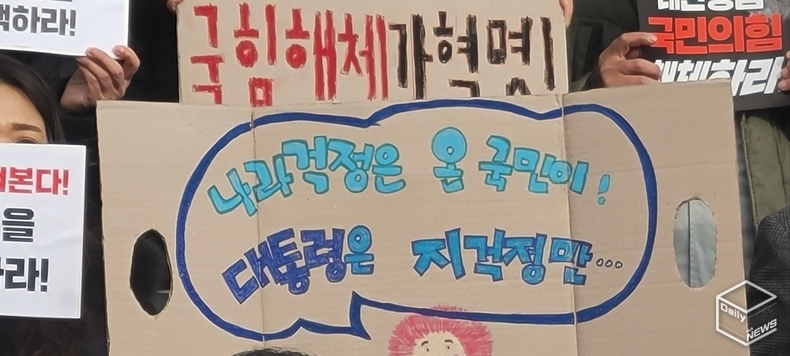 국힘해체가혁명!
국민의힘
해체하라
택하라!
나라걱정은 온 국민이!
대통령은 지걱정만...
켜본다!
을
라!
Daily
NEWS